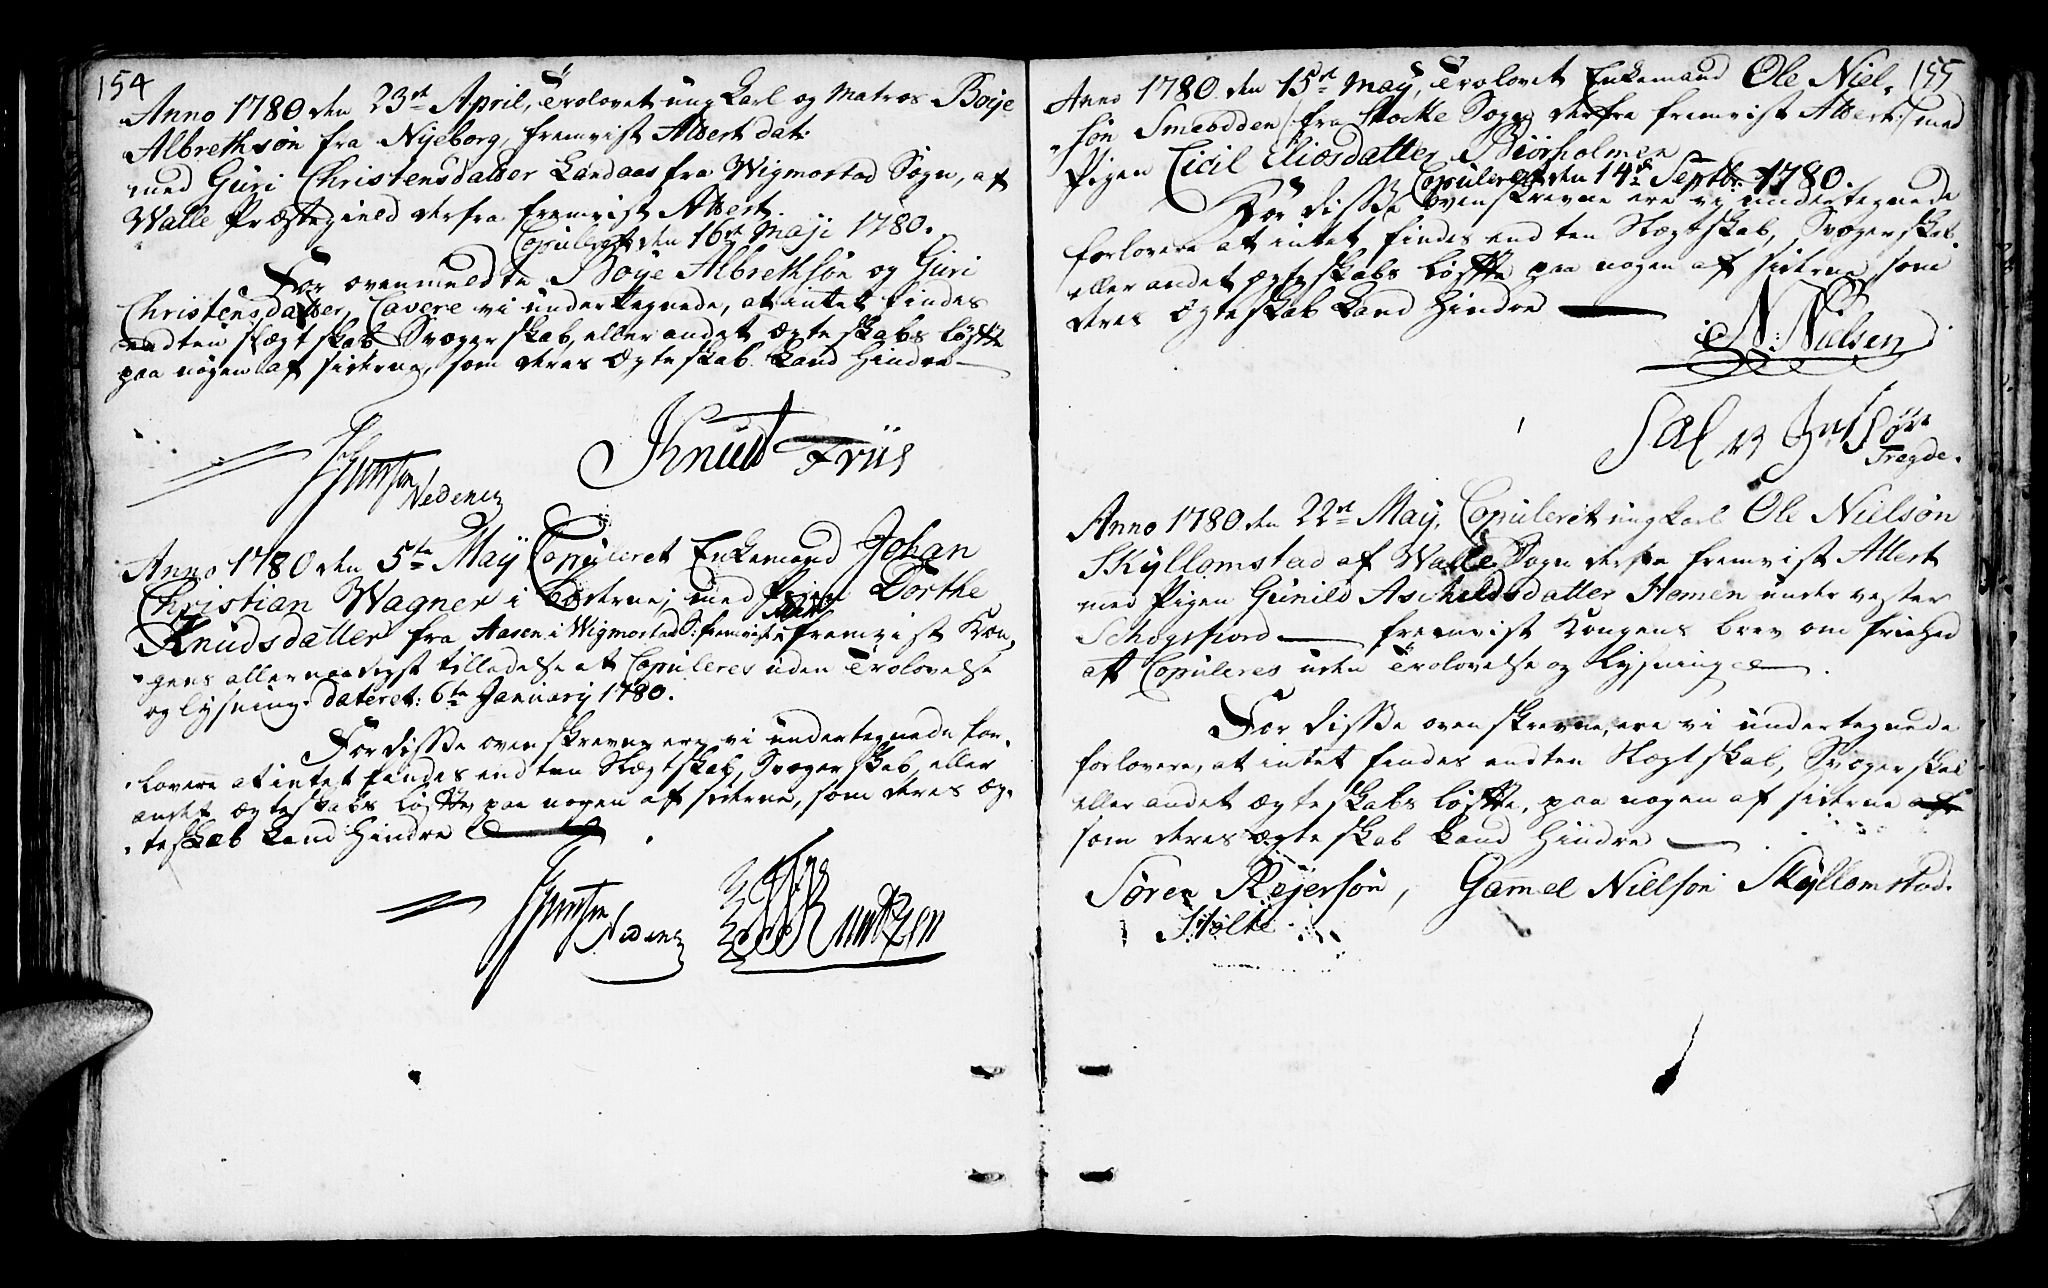 154
Anno 1780 den 23de April, Trolovet ung Karl og Matros Boije
Albrethsøn fra Nyeborg, fremvist Attest dat:
med Guri Christensdatter Landaas fra Wigmostad Sogn, af
Walle Præstegield derfra fremvist Attest
Copuleret den 16de Maji 1780.
For ovenmeldte Boije Albrethsøn og Guri
Christensdatter, Cavere vi undertegnede, at intet findes
endten Slægtskab Svogerskab, eller andet ægteskabs løffte
paa nogen af siderne, som deres Ægteskab kand hindre
Nedenes
Knud Friis
Anno 1780 den 5te May Copuleret Enkemand Johan
Christian Wagner i Byen; med Pigen Dorthe
Knudsdatter fra Aasen i Wigmostad S: fremvist fremvist Kon-
gens allernaadigst tilladelse at Copuleres uden Trolovelse
og lysning. dateret: 6te January 1780.
For disse ovenskrevne ere vi undertegnede for-
lovere at intet findes endten Slægtskab, Svogerskab, eller
andet ægteskabs løffte, paa nogen af siderne, som deres æg-
teskab kand hindre
Nedenes
Knutzen
155
Anno 1780 den 15de May, Trolovet Enkemand Ole Niel-
søn Smeodden (fra Hocke Sogn derfra fremvist Attest) med
Pigen Cicil Eliasdatter Biørholmen
Copuleret den 14de Septbr: 1780.
For disse ovenskrevne ere vi undertegnede
forlovere at intet findes endten Slægtskab, Svogerskab
eller andet ægteskabs løffte paa nogen af siderne, som
deres Ægteskab kand hindre
N: Nielsen
Sal
Tregde.
Anno 1780 den 22de May, Copuleret ung Karl Ole Nielsøn
Skyllomstad af Walle Sogn derfra fremvist Attest
med Pigen Gunild Aschildsdatter Hemen under vester
Schogsfiord fremvist Kongens brev om frihed
at Copuleres uden Trolovelse og Lysning
For disse ovenskrevne, ere vi undertegnede
forlovere, at intet findes endten Slægtskab, Svogerskab
eller andet ægteskabs løffte, paa nogen af siderne
som deres ægteskab kand hindre
Søren Rejersøn, Gamel Nielsøn Skyllomstad.
Stølte